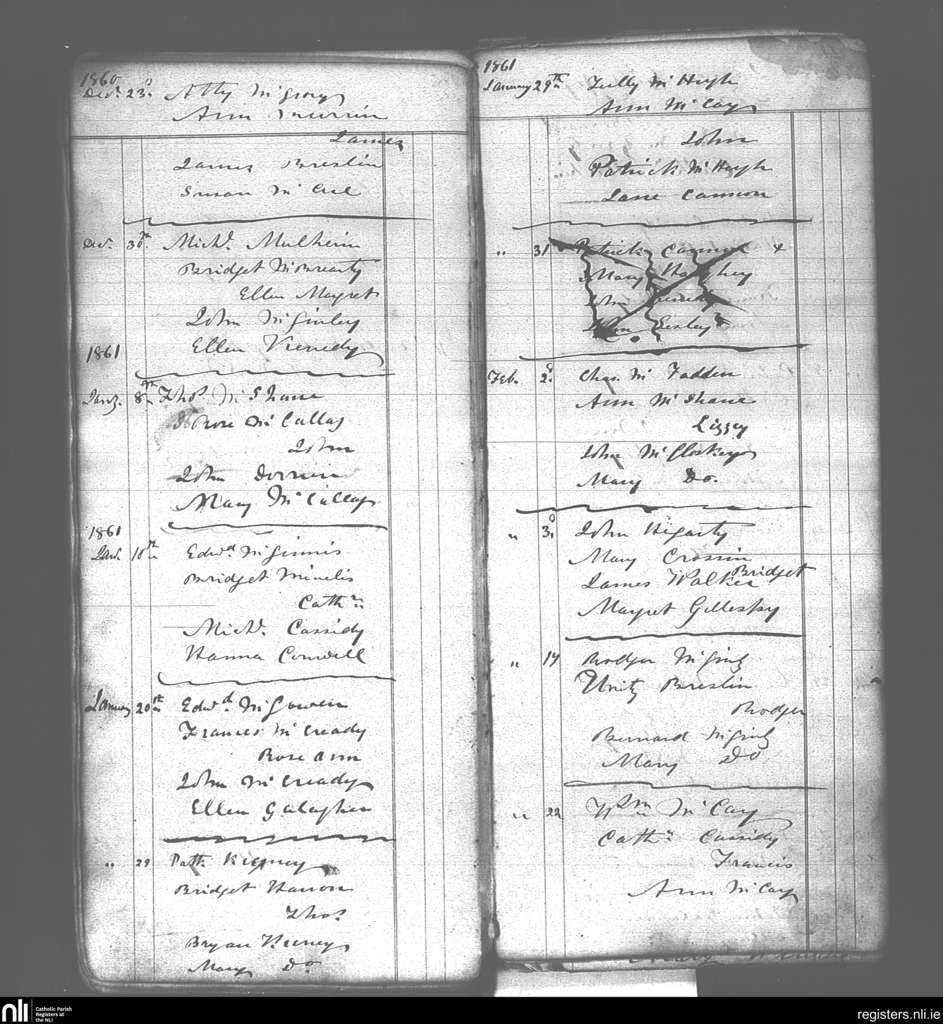 1860
Decr. 23d. Atty McGrory
Ann
James
James Breslin
Susan McCue
Decr. 30th. Michl. Mulherin
Bridget McBrearty
Ellen Magret
John McGinley
Ellen Kenedy
1861
Jany. 8th Thos. McShane
Rose McCallay
John
John Dorrin
Mary McCallay
1861
Jan. 10th Edwd. McGinnis
Bridget
Cathn.
Michl. Cassidy
Hanna Conwell
January 20th Edwd. McGowen
Frances McCready
Rose Ann
John McCready
Ellen Galagher
" 29 Patk. Keeney
Bridget Hanon
Thos.
Bryan Keeney
Mary Do.
1861
January 29th Felly McHugh
Ann McCay
John
Patrick McHugh
Jane Cannon
" 31 Patrick Cannon
Mary
John
John
Feb. 2d. Chas. McFadden
Ann McShane
Lizzey
John McCloskey
Mary Do.
" 3d. John Higarty
Mary Crossin
Bridget
James Walker
Magret Gillespy
" 17 Rodger McGinty
Unity Breslin
Rodger
Bernard McGinty
Mary Do
" 22 Wm McCay
Cathn. Cassidy
Francis
Ann McCay
nli Catholic Parish
Registers at
the NLI
registers.nli.ie